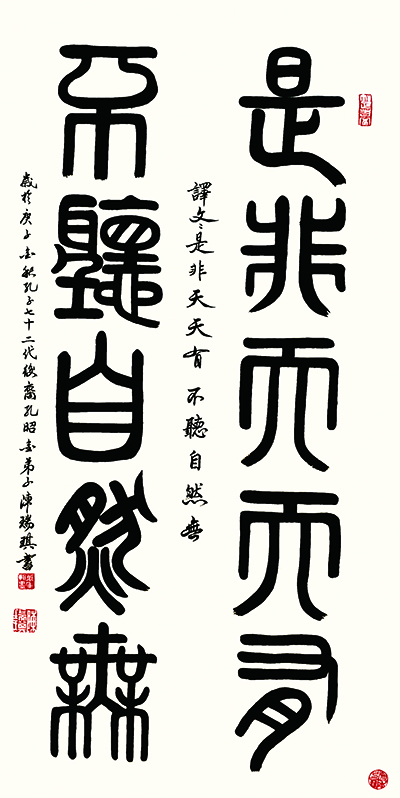 是非天天有
不聽自然無
譯文:是非天天有 不聽自然無
歲於庚子金秋孔子七十二代後裔孔昭金弟子陳瑞琪書